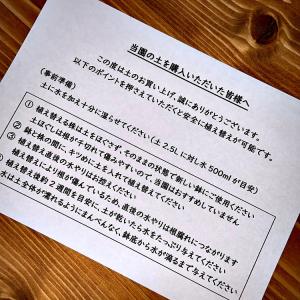 当園の土を購入いただいた皆様へ
この度は土のお買い上げ、誠にありがとうございます。
以下のポイントを押さえていただくと安全に植え替えが可能です。
(事前準備)
土に水を加え十分に湿らせてください(土2.5Lに対し水500mlが目安)
① 植え替える株は土をほぐさず、そのままの状態で新しい鉢にご使用ください
土ほぐしは根が千切れて傷みやすいので、当園はおすすめしていません
② 鉢と株の間に、キツめに土を入れて植え替えてください
③ 植え替え直後の水やりはお控えください
植え替えにより根が傷んでいるため、直後の水やりは根腐れにつながります
植え替え後約2週間を目安に、土が乾いたら水をたっぷり与えてください
水は土全体が濡れるようにまんべんなく、鉢底から水が滴るまで与えてください